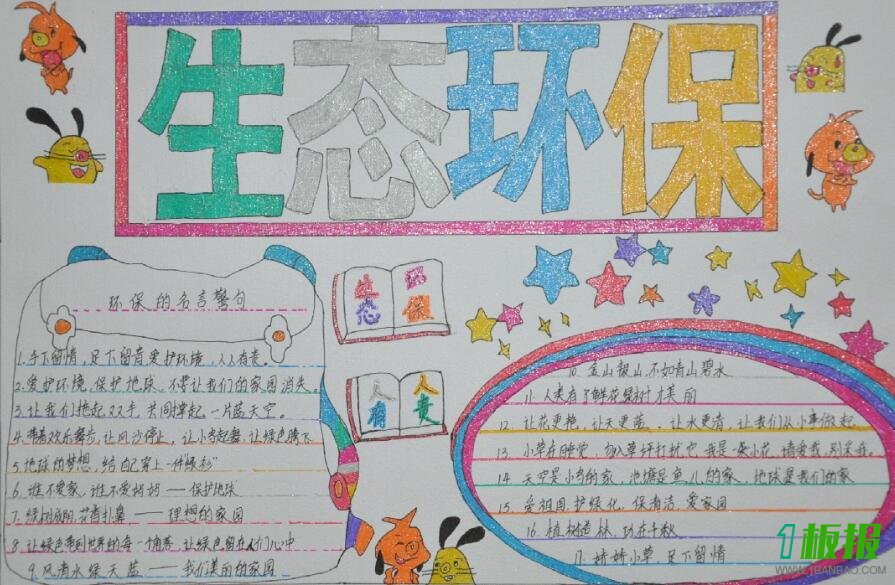 生态环保
环保的名言警句
1.手下留情,足下留青爱护环境,人人有责。
2.爱护环境.保护地球,不要让我们的家园消失。
3.让我们挽起双手,共同撑起一片蓝天空。
4.带着欢乐舞步,让风沙停止,让小鸟起舞,让绿色腾飞
5 地球的梦想,给自己穿上一件"绿衫"
6. 谁不爱家,谁不爱妈妈——保护地球
7. 绿树成阴 花香扑鼻——理想的家园
8. 让绿色带到世界的每一个角落 让绿色留在人们心中
9.风清水绿天蓝——我们美丽的家园
生态 环保
人有 人责
10 金山银山,不如青山碧水
11. 人类有了鲜花绿树才美丽
12. 让花更艳,让天更蓝。让水更清,让我们从小事做起
13 小草在睡觉,勿入草坪打扰它 我是一朵小花,请爱我,别采我。
14 天空是小鸟的家,池塘是鱼儿的家,地球是我们的家
15 爱祖国.护绿化,保清洁.爱家园
16. 植树造林,功在千秋
17. 娇娇小草,足下留情
1板报
WWW.1BANBAO.COM